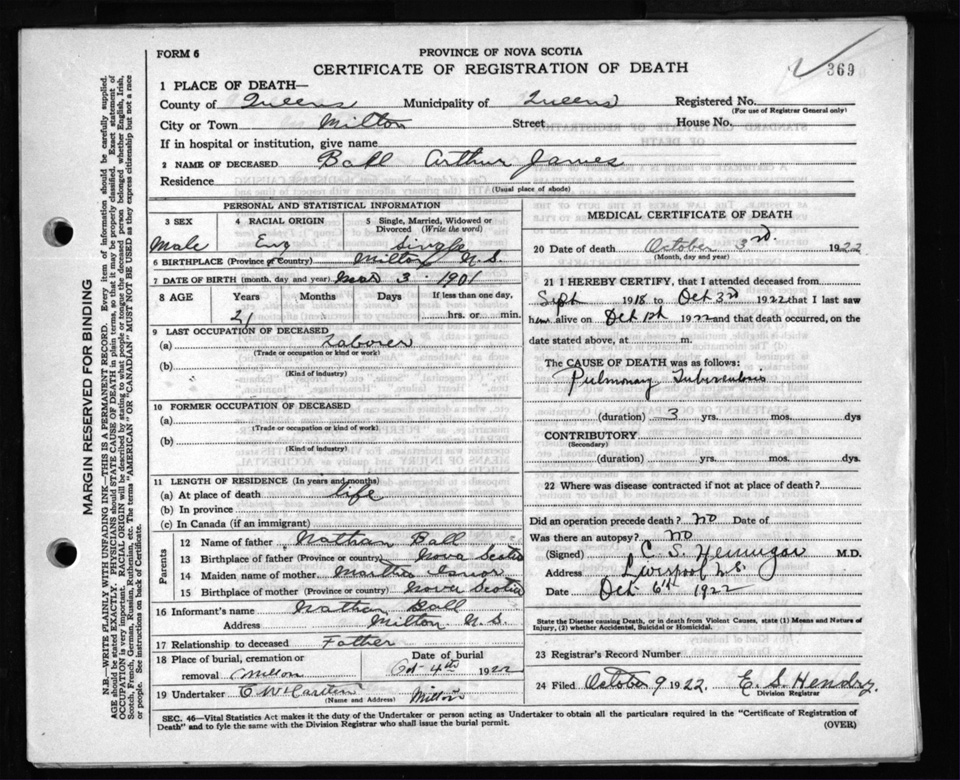 FORM 6
PROVINCE OF NOVA SCOTIA
CERTIFICATE OF REGISTRATION OF DEATH
369
1 PLACE OF DEATH—
County of Queens Municipality of Queens Registered No.
(For use of Registrar General only)
City or Town Milton Street House No.
If in hospital or institution, give name
2 NAME OF DECEASED Ball Arthur James
Residence
(Usual place of abode)
PERSONAL AND STATISTICAL INFORMATION
3 SEX 4 RACIAL ORIGIN 5 Single, Married, Widowed or Divorced (Write the word)
Male Eng Single
6 BIRTHPLACE (Province or Country) Milton N.S.
7 DATE OF BIRTH (month, day and year) 3 1901
8 AGE Years Months Days If less than one day,
21 hrs. or min.
9 LAST OCCUPATION OF DECEASED
(a) Laborer
(Trade or occupation or kind or work)
(b)
(Kind of industry)
10 FORMER OCCUPATION OF DECEASED
(a)
(Trade or occupation or kind of work)
(b)
(Kind of industry)
11 LENGTH OF RESIDENCE (In years and months)
(a) At place of death life
(b) In province
(c) In Canada (if an immigrant)
Parents
12 Name of father Nathan Ball
13 Birthplace of father (Province or country) Nova Scotia
14 Maiden name of mother Martha
15 Birthplace of mother (Province or country) Nova Scotia
16 Informant's name Nathan Ball
Address Milton N.S.
17 Relationship to deceased Father
18 Place of burial, cremation or removal Milton Date of burial Oct 4th 1922
19 Undertaker Milton
(Name and Address)
MEDICAL CERTIFICATE OF DEATH
20 Date of death October 3rd. 1922
(Month, day and year)
21 I HEREBY CERTIFY, that I attended deceased from
Sept 1918 to Oct 3rd 1922 that I last saw
him alive on Oct 1st 1922 and that death occurred, on the
date stated above, at m.
The CAUSE OF DEATH was as follows:
Pulmonary Tuberculosis
(duration) 3 yrs. mos. dys
CONTRIBUTORY
(Secondary)
(duration) yrs. mos. dys.
22 Where was disease contracted if not at place of death?
Did an operation precede death? no Date of
Was there an autopsy? no
(Signed) C. S. M.D.
Address Liverpool N.S.
Date Oct 6th 1922
State the Disease causing Death, or in death from Violent Causes, state (1) Means and Nature of
Injury, (2) whether Accidental, Suicidal or Homicidal.
23 Registrar's Record Number
24 Filed October 9 1922. E. S. Hendry.
Division Registrar
SEC. 46—Vital Statistics Act makes it the duty of the Undertaker or person acting as Undertaker to obtain all the particulars required in the "Certificate of Registration of
Death" and to fyle the same with the Division Registrar who shall issue the burial permit.
(OVER)
MARGIN RESERVED FOR BINDING
N.B.—WRITE PLAINLY WITH UNFADING INK—THIS IS A PERMANENT RECORD. Every item of information should be carefully supplied.
AGE should be stated EXACTLY. PHYSICIANS should STATE CAUSE OF DEATH in plain terms, so that it may be properly classified. Exact statement of
OCCUPATION is very important. RACIAL ORIGIN will be described by stating to what people or tongue the deceased person belonged whether English, Irish,
Scotch, French, German, Russian, Ruthenian, etc. The terms "AMERICAN" or "CANADIAN" MUST NOT BE USED as they express citizenship but not a race
or people. See instructions on back of Certificate.